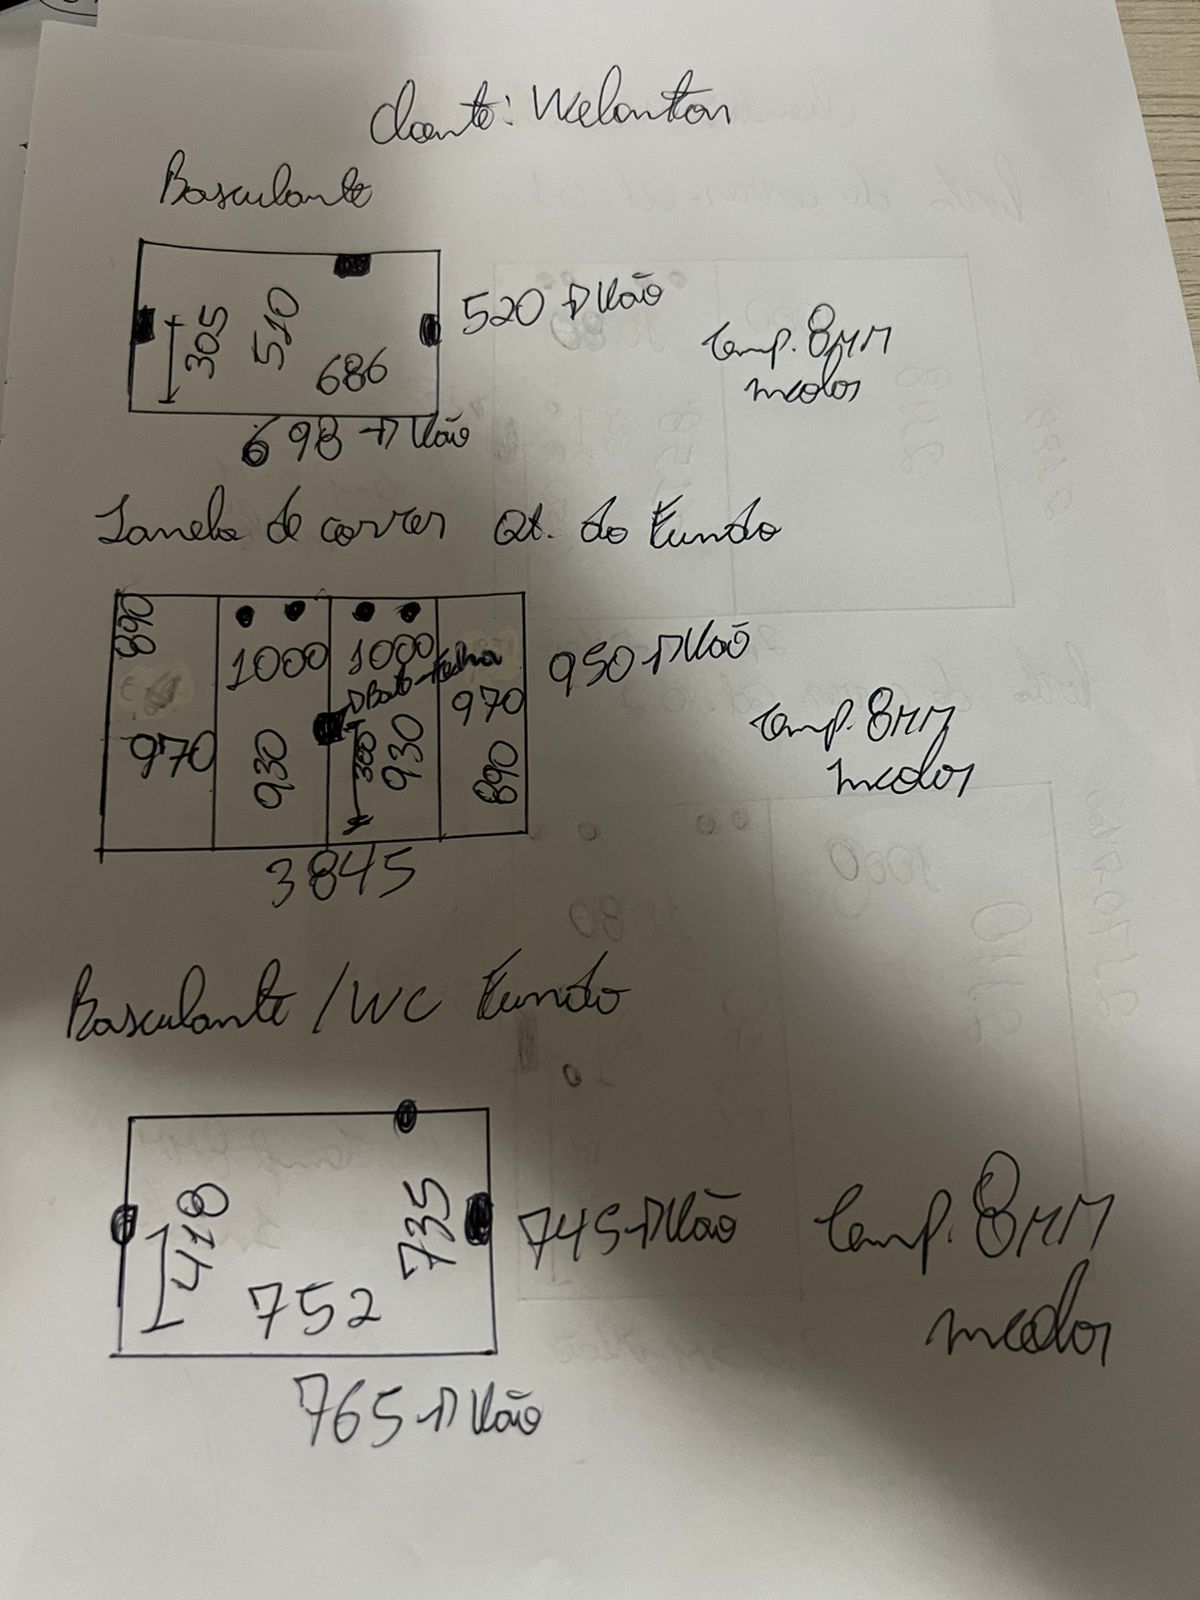 Cliente: Welonton
Basculante
305
510
686
520 → Vão
698 → Vão
Temp. 8MM
incolor
Janela de correr Qt. do Fundo
890
1000
1000
→ Bate-Fecha
970
930
300
930
970
890
950 → Vão
3845
Temp. 8MM
incolor
Basculante / WC Fundo
418
735
752
745 → Vão
765 → Vão
Temp. 8MM
incolor